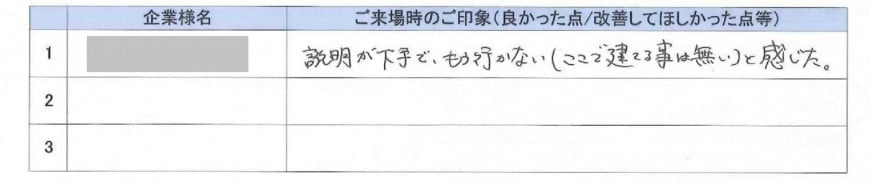 企業様名 ご来場時のご印象(良かった点/改善してほしかった点等)
1 説明が下手で、もう行かない(ここで建てる事は無い)と感じた。
2
3